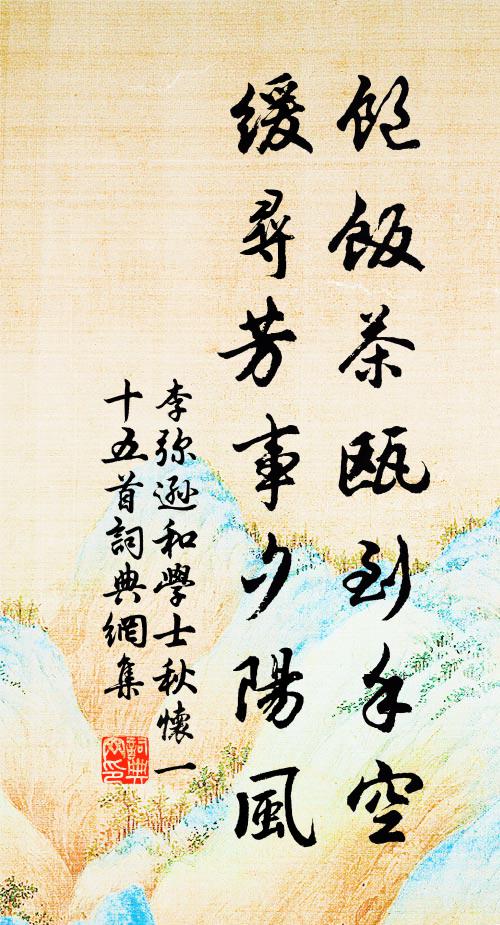 飽飯茶甌到手空
緩尋芳事夕陽風
李弥遜和學士秋懷一
十五首詞典網集
詞典
网印